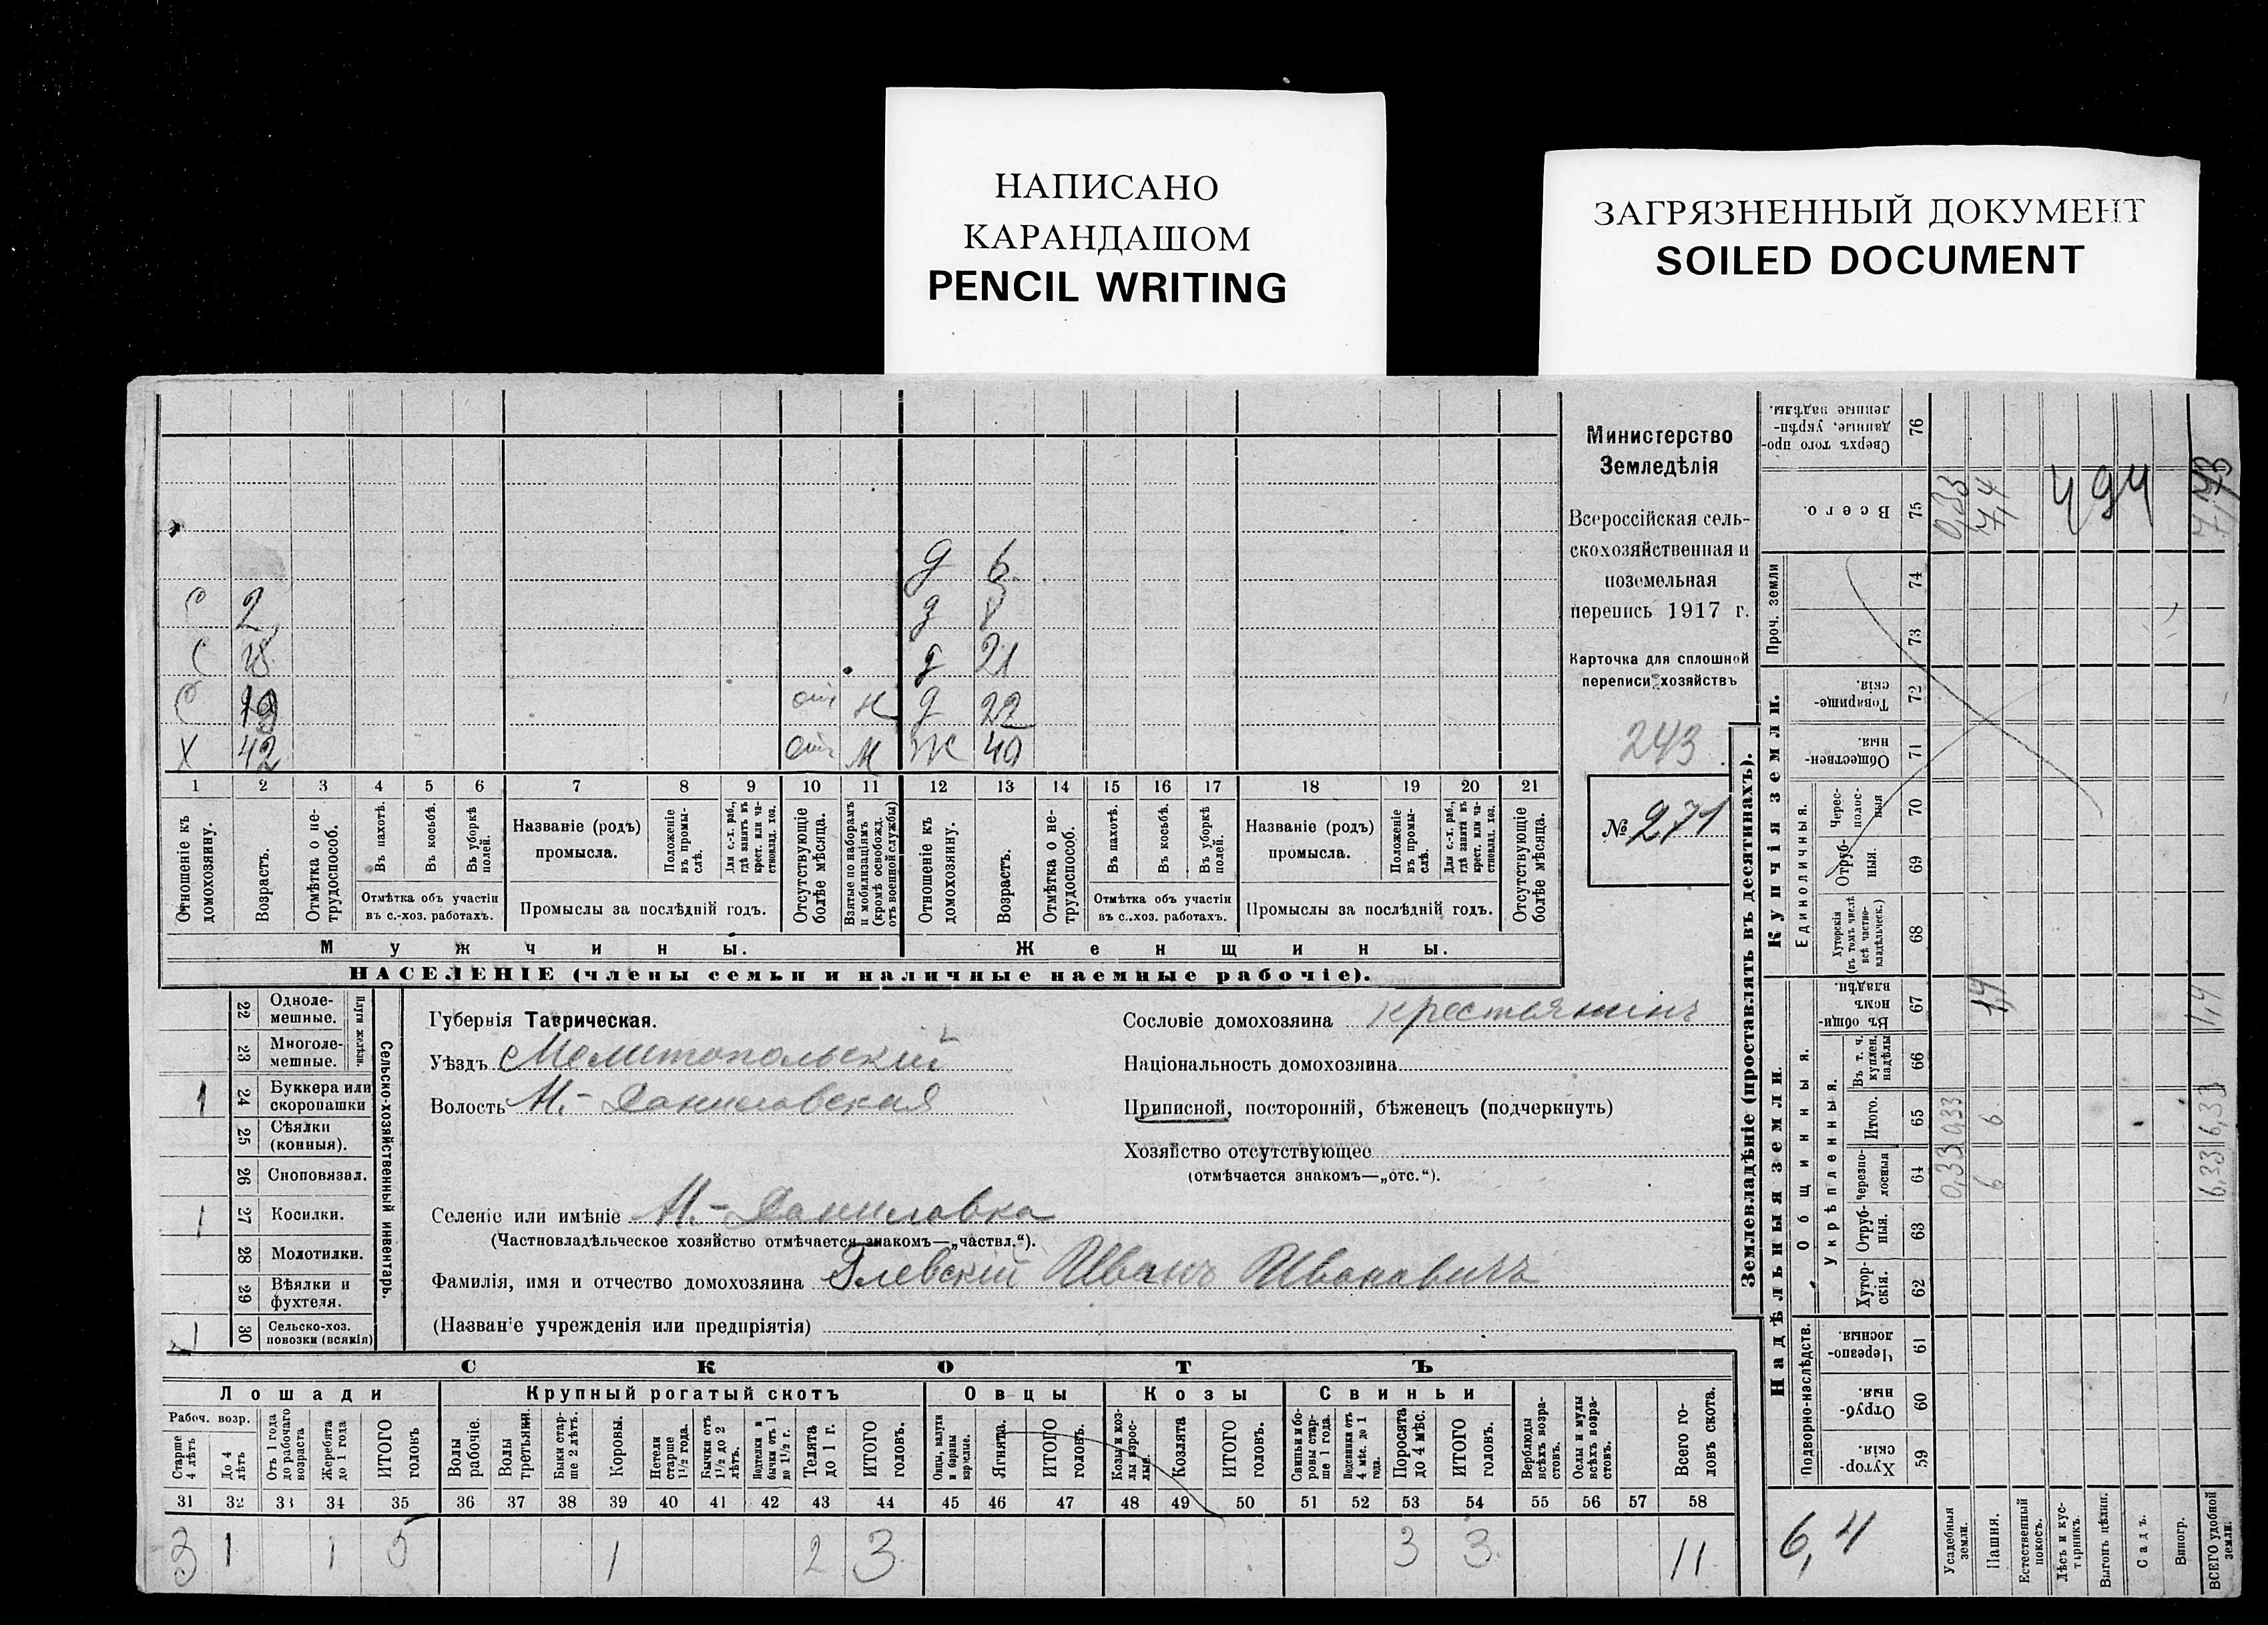 НАПИСАНО
КАРАНДАШОМ
PENCIL WRITING
ЗАГРЯЗНЕННЫЙ ДОКУМЕНТ
SOILED DOCUMENT
Министерство
Земледѣлія
Всероссійская сель-
скохозяйственная и
поземельная
перепись 1917 г.
Карточка для сплошной
переписи хозяйствъ
243
№ 271
д 6
С 2 д 8
С 18 д 21
С 19 д 22
Х 42 М Ж 40
1 2 3 4 5 6 7 8 9 10 11 12 13 14 15 16 17 18 19 20 21
Отношеніе къ домохозяину.
Возрастъ.
Отмѣтка о не-трудоспособ.
Въ пахотѣ.
Въ косьбѣ.
Въ уборкѣ полей.
Отмѣтка объ участіи
въ с.-хоз. работахъ.
Названіе (родъ)
промысла.
Положеніе въ промы-слѣ.
Для с.-х. раб., гдѣ занятъ въ крест. или ча-стновлад. хоз.
Промыслы за послѣдній годъ.
Отсутствующіе болѣе мѣсяца.
Взятые по наборамъ и мобилизаціямъ (кромѣ освобожд. отъ военной службы)
Отношеніе къ домохозяину.
Возрастъ.
Отмѣтка о не-трудоспособ.
Въ пахотѣ.
Въ косьбѣ.
Въ уборкѣ полей.
Отмѣтка объ участіи
въ с..хоз. работахъ.
Названіе (родъ)
промысла.
Положеніе въ промы-слѣ.
Для с.-х. раб., гдѣ занята въ крест. или ча-стновлад. хоз.
Промыслы за послѣдній годъ.
Отсутствующіе болѣе мѣсяца.
Мужчины.
Женщины.
НАСЕЛЕНІЕ (члены семьи и наличные наемные рабочіе).
Сельско-хозяйственный инвентарь.
Плуги желѣзн.
22 Одноле-мешные.
23 Многоле-мешные.
1 24 Буккера или скоропашки
25 Сѣялки (конныя).
26 Сноповязал.
1 27 Косилки.
28 Молотилки.
29 Вѣялки и фухтеля.
1 30 Сельско-хоз. повозки (всякія)
Губернія Таврическая.
Уѣздъ Мелитопольскій
Волость М.-Даниловская
Селеніе или имѣніе М.-Даниловка
(Частновладѣльческое хозяйство отмѣчается знакомъ—„частвл.“).
Фамилія, имя и отчество домохозяина Глевскій Иванъ Ивановичъ
(Названіе учрежденія или предпріятія)
Сословіе домохозяина крестьянинъ
Національность домохозяина
Приписной, посторонній, бѣженецъ (подчеркнуть)
Хозяйство отсутствующее
(отмѣчается знакомъ—„отс.“).
СКОТЪ
Лошади
Крупный рогатый скотъ
Овцы
Козы
Свиньи
Рабоч. возр.
Старше 4 лѣтъ
До 4 лѣтъ
Отъ 1 года до рабочаго возраста
Жеребята до 1 года
ИТОГО головъ
Волы рабочіе.
Волы третьяки.
Быки стар-ше 2 лѣтъ.
Коровы.
Нетели старше 1½ года.
Бычки отъ 1½ до 2 лѣтъ.
Подтелки и бычки отъ 1 до 1½ г.
Телята до 1 г.
ИТОГО головъ.
Овцы, валухи и бараны взрослые.
Ягнята.
ИТОГО головъ.
Козы и коз-лы взрос-лые.
Козлята
ИТОГО головъ.
Свиньи и бо-ровы стар-ше 1 года.
Подсвинки отъ 4 мѣс. до 1 года.
Поросята до 4 мѣс.
ИТОГО головъ.
Верблюды всѣхъ возра-стовъ.
Ослы и мулы всѣхъ возра-стовъ.
Всего го-ловъ скота.
31 32 33 34 35 36 37 38 39 40 41 42 43 44 45 46 47 48 49 50 51 52 53 54 55 56 57 58
3 1 1 5 1 2 3 3 3 11
Землевладѣніе (проставлять въ десятинахъ).
Надѣльныя земли.
Купчія земли.
Проч. земли
Подворно-наслѣдств.
Общинныя.
Укрѣпленныя.
Единоличныя.
Сверхъ того про-данные, укрѣп-ленные надѣлы. 76
Всего. 75
74
73
Товарище-скія. 72
Обществен-ныя. 71
Черес-полос-ныя 70
Отруб-ныя. 69
Хуторскія (въ томъ числѣ всѣ частно-владѣльческ.) 68
Въ общи-номъ владѣн. 67
Въ т. ч. куплен. надѣлы 66
Итого. 65
черезпо-лосныя 64
Отруб-ныя. 63
Хутор-скія. 62
Черезпо-лосныя. 61
Отруб-ныя. 60
Хутор-скія. 59
0,33 7,4 494 7,73
1,4 1,4
0,33 6 6,33
0,33 6 6,33
6,4
Усадебныя земли.
Пашня.
Естественный покосъ.
Лѣсъ и кус-тарникъ.
Выгонъ цѣлин.
Садъ.
Виногр.
ВСЕГО удобной земли.